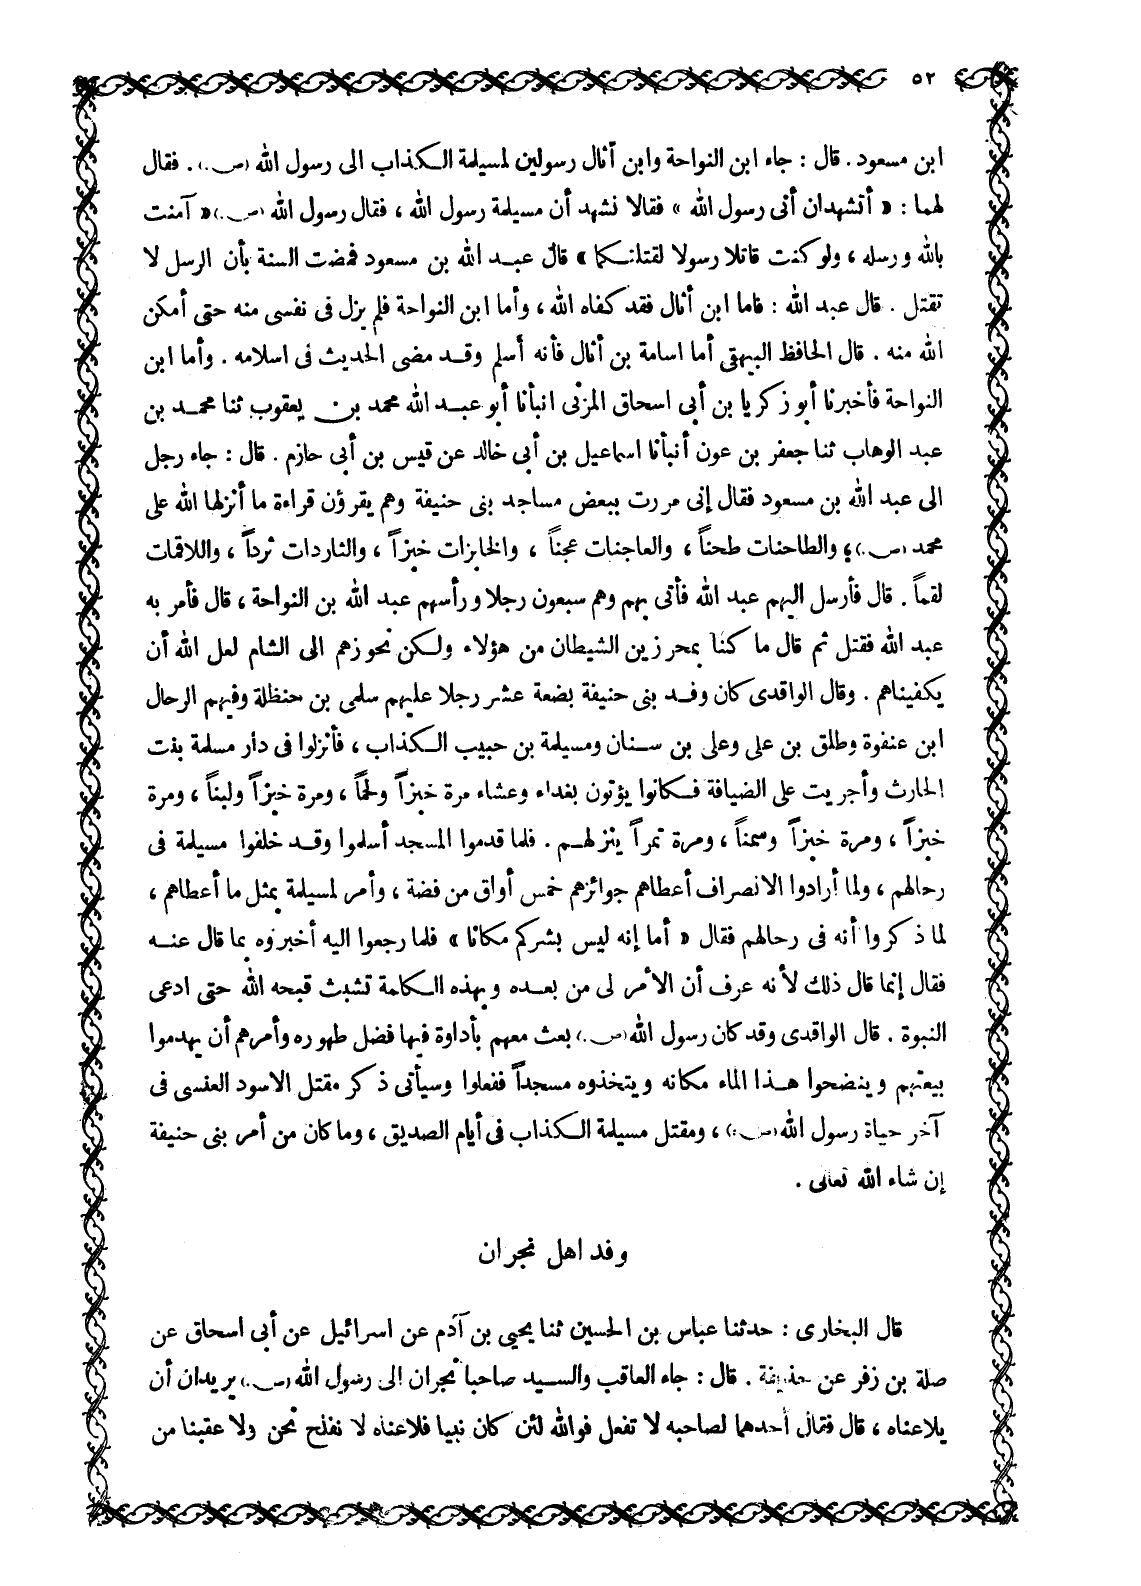 ٥٢
ابن مسعود . قال : جاء ابن النواحة وابن أثال رسولين لمسيلمة الكذاب الى رسول الله (ص.) . فقال
لهما : « أتشهدان أنى رسول الله » فقالا نشهد أن مسيلمة رسول الله ، فقال رسول الله (ص.) « آمنت
بالله ورسله ، ولو كنت قاتلا رسولا لقتلتكما » قال عبد الله بن مسعود فمضت السنة بأن الرسل لا
تقتل . قال عبد الله : فاما ابن أثال فقد كفاه الله ، وأما ابن النواحة فلم يزل فى نفسى منه حتى أمكن
الله منه . قال الحافظ البيهقى أما اسامة بن أثال فأنه أسلم وقد مضى الحديث فى اسلامه . وأما ابن
النواحة فأخبرنا أبو زكريا بن أبى اسحاق المزنى انبأنا أبو عبد الله محمد بن يعقوب ثنا محمد بن
عبد الوهاب ثنا جعفر بن عون أنبأنا اسماعيل بن أبى خالد عن قيس بن أبى حازم . قال : جاء رجل
الى عبد الله بن مسعود فقال إنى مررت ببعض مساجد بنى حنيفة وهم يقرؤن قراءة ما أنزلها الله على
محمد (ص.) ؛ والطاحنات طحناً ، والعاجنات عجناً ، والخابزات خبزاً ، والثاردات ثرداً ، واللاقمات
لقماً . قال فأرسل اليهم عبد الله فأتى بهم وهم سبعون رجلا ورأسهم عبد الله بن النواحة ، قال فأمر به
عبد الله فقتل ثم قال ما كنا بمحرزين الشيطان من هؤلاء ولكن نحوزهم الى الشام لعل الله أن
يكفيناهم . وقال الواقدى كان وفد بنى حنيفة بضعة عشر رجلا عليهم سلمى بن حنظلة وفيهم الرحال
ابن عنفوة وطلق بن على وعلى بن سنان ومسيلمة بن حبيب الكذاب ، فأنزلوا فى دار مسلمة بنت
الحارث وأجريت على الضيافة فكانوا يؤتون بغداء وعشاء مرة خبزاً ولحماً ، ومرة خبزاً ولبناً ، ومرة
خبزاً ، ومرة خبزاً وسمناً ، ومرة تمراً ينزلهم . فلما قدموا المسجد أسلموا وقد خلفوا مسيلمة فى
رحالهم ، ولما أرادوا الانصراف أعطاهم جوائزهم خمس أواق من فضة ، وأمر لمسيلمة بمثل ما أعطاهم ،
لما ذكروا أنه فى رحالهم فقال « أما إنه ليس بشركم مكانا » فلما رجعوا اليه أخبروه بما قال عنه
فقال إنما قال ذلك لأنه عرف أن الأمر لى من بعده وبهذه الكلمة تشبث قبحه الله حتى ادعى
النبوة . قال الواقدى وقد كان رسول الله (ص.) بعث معهم بأداوة فيها فضل طهوره وأمرهم أن يهدموا
بيعتهم وينضحوا هذا الماء مكانه ويتخذوه مسجداً ففعلوا وسيأتى ذكر مقتل الاسود العنسى فى
آخر حياة رسول الله (ص.) ، ومقتل مسيلمة الكذاب فى أيام الصديق ، وما كان من أمر بنى حنيفة
إن شاء الله تعالى .
وفد اهل نجران
قال البخارى : حدثنا عباس بن الحسين ثنا يحيى بن آدم عن اسرائيل عن أبى اسحاق عن
صلة بن زفر عن حذيفة . قال : جاء العاقب والسيد صاحبا نجران الى رسول الله (ص.) يريدان أن
يلاعناه ، قال فقال أحدهما لصاحبه لا تفعل فوالله لئن كان نبيا فلاعناه لا نفلح نحن ولا عقبنا من